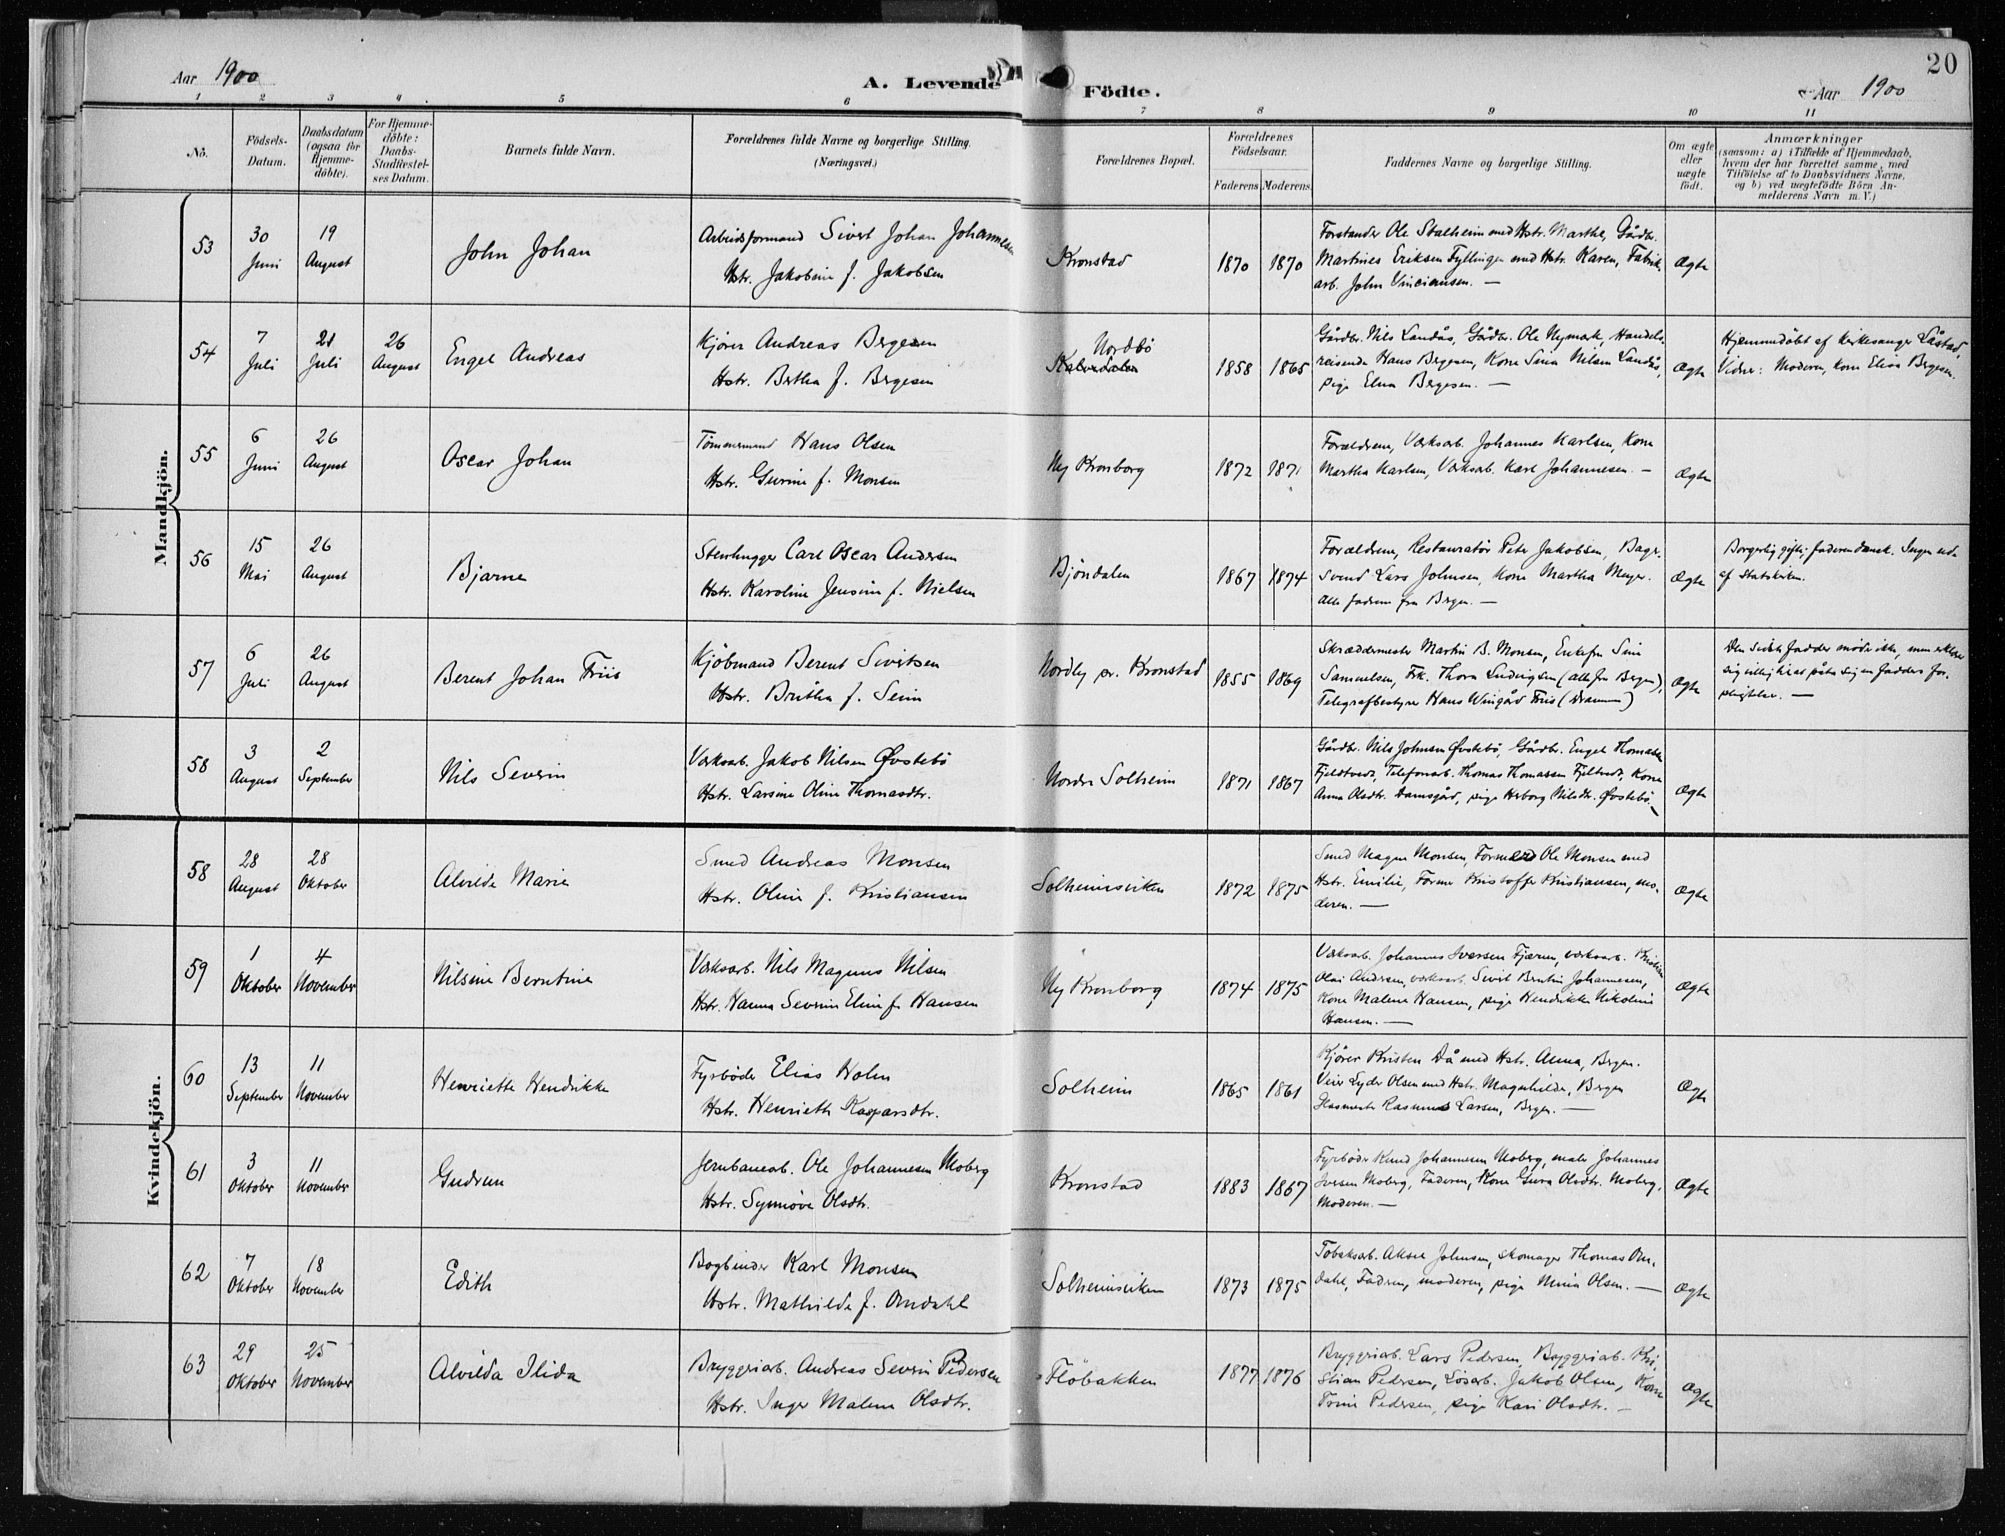 20
Aar 1900
A. Levende Födte.
Aar 1900
1 2 3 4 5 6 7 8 9 10 11
No.
Födsels-Datum.
Daabsdatum (ogsaa for Hjemme-döbte).
For Hjemme-döbte: Daabs-Stadfæstel-ses Datum.
Barnets fulde Navn.
Forældrenes fulde Navne og borgerlige Stilling. (Næringsvei.)
Forældrenes Bopæl.
Forældrenes Födselsaar.
Faderens Moderens
Faddernes Navne og borgerlige Stilling.
Om ægte eller uægte födt.
Anmærkninger
(saasom: a) i Tilfælde af Hjemmedaab,
hvem der har forrettet samme, med
Tilföielse af to Daabsvidners Navne,
og b) ved uægtefödte Börn An-
melderens Navn m. V.)
Mandkjön.
53 30 Juni 19 August John Johan
Arbeidsformand Sivert Johan Johannesen
Hstr. Jakobine f. Jakobsen
Kronstad 1870 1870
Forstander Ole Stalheim med Hstr. Martha, Gårdbr.
Martines Eriksen Fyllingen med Hstr. Karen, Fabrik-
arb. John Vinciansen. —
Ægte
54 7 Juli 21 Juli 26 August Engel Andreas
Kjører Andreas Bergesen
Hstr. Bertha f. Bergesen
Nordbö
Kalvedalen 1858 1865
Gårdbr. Nils Landås, Gårdbr. Ole Nymark, Handels-
reisende Hans Bergesen, Kone Sina Nilsen Landås,
pige Elna Bergesen. —
Ægte
Hjemmedöbt af kirkesanger Låstad,
Vidner: Moderen, kone Elisa Bergesen.
55 6 Juni 26 August Oscar Johan
Tömmermand Hans Olsen
Hstr. Gurine f. Monsen
Ny Kronborg 1872 1871
Forældrene, Værksarb. Johannes Karlsen, Kone
Martha Karlsen, Værksarb. Karl Johannesen. —
Ægte
56 15 Mai 26 August Bjarne
Stenhugger Carl Oscar Andersen
Hstr. Karoline Jensine f. Nielsen
Bjöndalen 1867 1874
Forældrene, Restauratör Peter Jakobsen, Bager-
svend Lars Johnsen, Kone Martha Meyer.
Alle faddrene fra Bergen. —
Ægte
Borgerlig gifte; faderen dansk. Ingen ude
af Statskirken.
57 6 Juli 26 August Berent Johan Friis
Kjöbmand Berent Sivertsen
Hstr. Britha f. Seim
Nordley pr. Kronstad 1855 1869
Skræddermester Martin B. Monsen, Enkefru Sina
Samuelsen, Frk. Thora Ludvigsen (alle fra Bergen),
Telegrafbestyrer Hans Wingård Friis (Drammen)
Ægte
Den sidste fadder mödte ikke, men erklærte
sig villig til at påta sig en fadders for-
pligtelser. —
58 3 August 2 September Nils Severin
Værksarb. Jakob Nilsen Øvstebö
Hstr. Larsine Oline Thomasdtr.
Nordre Solheim 1871 1867
Gårdbr. Nils Johnsen Øvstebö, Gårdbr. Engel Thomassen
Fjeldtvedt, Telefonarb. Thomas Thomassen Fjeltvedt, Kone
Anna Olsdtr. Damsgård, pige Herborg Nilsdtr. Øvstebö. —
Ægte
Kvindekjön.
58 28 August 28 Oktober Alvilda Marie
Smed Andreas Monsen
Hstr. Oline f. Kristiansen
Solheimsviken 1872 1875
Smed Magne Monsen, Former Ole Monsen med
Hstr. Emilie, Former Kristoffer Kristiansen, mo-
deren. —
Ægte
59 1 Oktober 4 November Nilsine Berntine
Værksarb. Nils Magnus Nilsen
Hstr. Hanna Severine Eline f. Hansen
Ny Kronborg 1874 1875
Værksarb. Johannes Iversen Fjæren, værksarb. Kristian
Olai Andersen, værksarb. Sivert Bertin Johannesen,
Kone Malene Hansen, pige Hendrikke Nikoline
Hansen. —
Ægte
60 13 September 11 November Henriette Hendrikke
Fyrböder Elias Holm
Hstr. Henriette Kasparsdtr.
Solheim 1865 1861
Kjörer Kristen Då med Hstr. Anna, Bergen.
Veier Lyder Olsen med Hstr. Magnhilda, Bergen
Rasmus Larsen, Bergen. —
Ægte
61 3 Oktober 11 November Gudrun
Jernbanearb. Ole Johannesen Moberg
Hstr. Synnöve Olsdtr.
Kronstad 1883 1867
Fyrböder Knud Johannesen Moberg, maler Johannes
Iversen Moberg, Faderen, Kone Guro Olsdtr. Moberg,
Moderen. —
Ægte
62 7 Oktober 18 November Edith
Bogbinder Karl Monsen
Hstr. Mathilda f. Omdahl
Solheimsviken 1873 1875
Tobaksarb. Aksel Johnsen, skomager Thomas Om-
dahl, Fadren, moderen, pige Mina Olsen. —
Ægte
63 29 Oktober 25 November Alvilda Ilida
Bryggeriarb. Andreas Severin Pedersen
Hstr. Inger Malene Olsdtr.
Flöbakken 1877 1876
Bryggeriarb. Lars Pedersen, Bryggeriarb. Kri-
stian Pedersen, Lösarb. Jakob Olsen, Kone
Trine Pedersen, pige Kari Olsdtr. —
Ægte